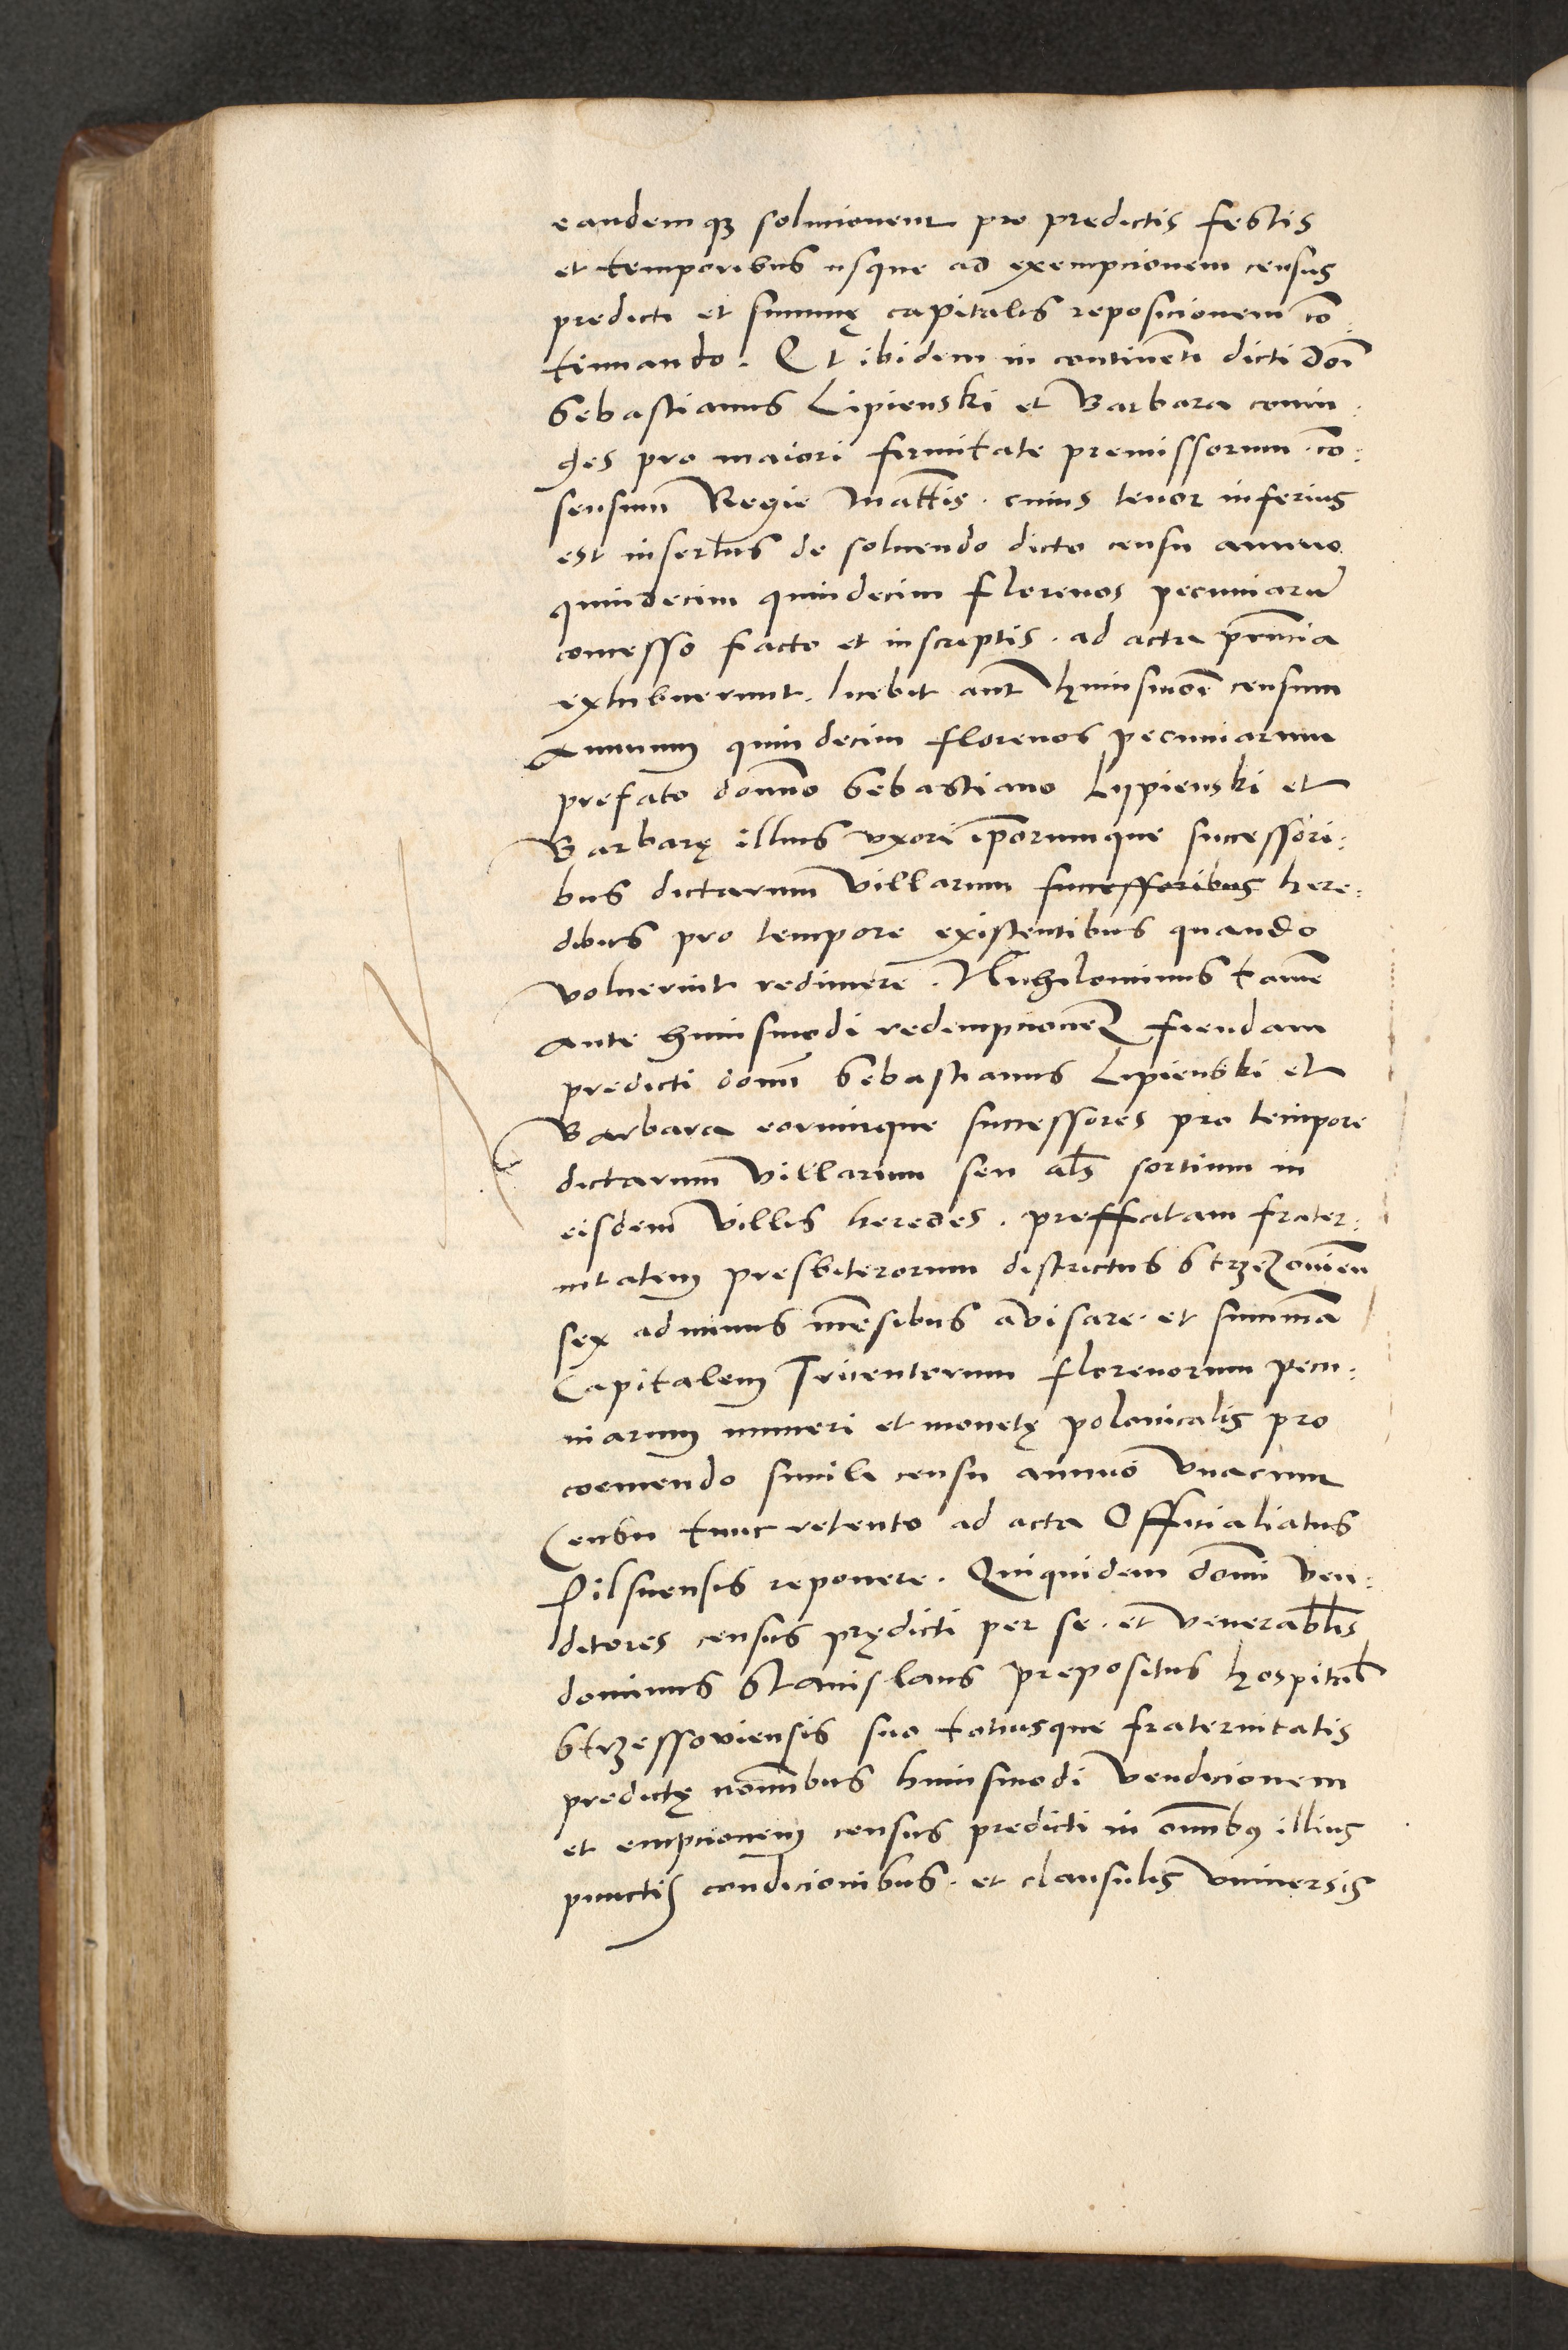 eandemqꝫ solucionem pro predictis festis
et temporibus usque ad exempcionem census
predicti et summę capitalis reposicionem cō
tinuando. Et ibidem in continēti dicti Dōi
Sebastianus Lipienski et Barbara coniu:
ges pro maiori firmitate premissorum cō:
sensum Regie Maᵗᵗis. cuius tenor inferius
est insertus de soluendo dicto censu annuo
quindecim quindecim florenos pecuniarū
concesso facto et inscriptis. ad acta p̄ntia
exhibuerunt. licebit aūt huiusmōi censum
Annuum quindecim florenos pecuniarum
prefato domīno Sebastiano Lypienski et
Barbarę illius vxori ip̄orumque successori:
bus dictarum villarum successoribus here:
dibus pro tempore existentibus quando
voluerint redimere. Nihilominus tamē
Ante huiusmodi redempcionem fiendam
predicti domī Sebastianus Lipienski et
Barbara eorumque successores pro tempore
dictarum Villarum seu als sortium in
eisdem Villis heredes. preffatam frater:
nitatem presbiterorum districtus Strzezouien̄
sex adminus mēsibus avisare. et summā
Capitalem Tricentorum florenorum pecu:
niarum numeri et monetę polonicalis pro
coemendo simili censu annuo vnacum
Censu tunc retento ad acta Officialiatus
Pilsnensis reponere. Quiquidem domī ven:
ditores census prędicti per se. et venerablīs
dominus Stanislaus prepositus hospital̄
Strzessoviensis suo totiusque fraternitatis
predictę nomībus huiusmodi vendicionem
et empcionem census predicti in omībꝰ illius
punctis condicionibus. et clausulis vniuersis